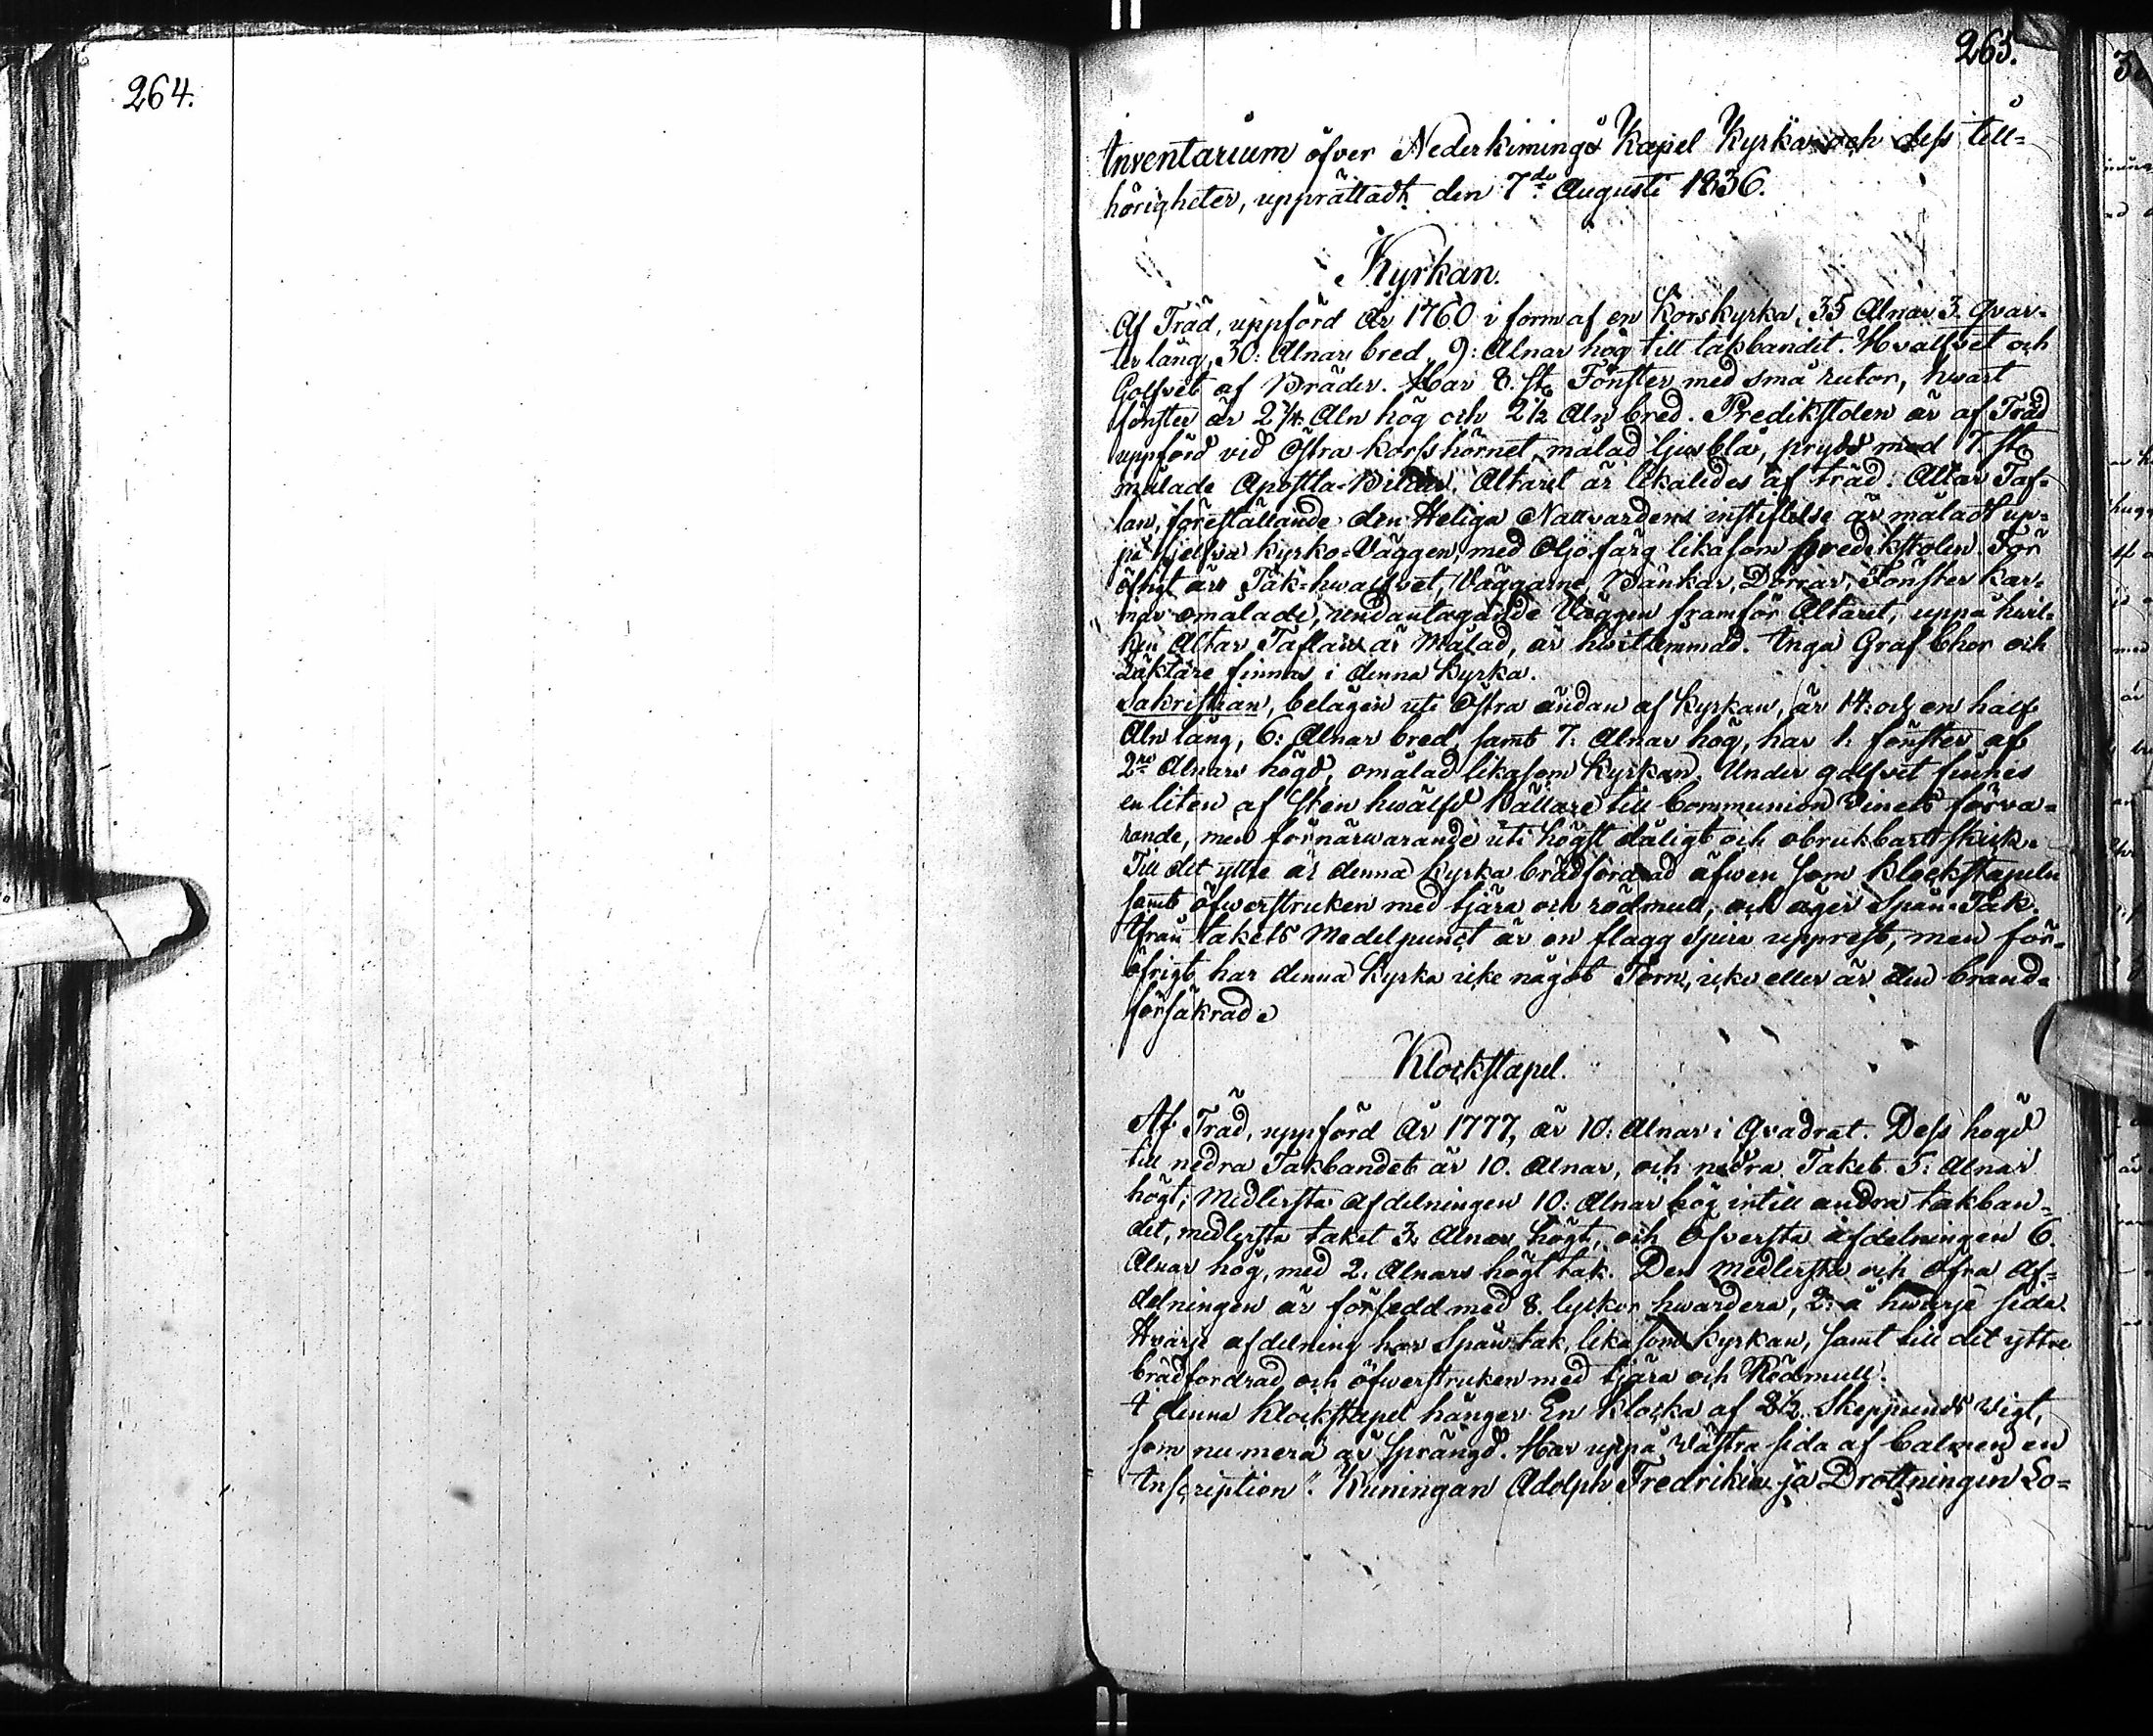 264.
265.
Inventarium öfver Nederkimingö Kapel Kyrka och dess till=
hörigheter, upprättadt den 7de Augusti 1836.
Kyrkan.
Af Träd, uppförd År 1760 i form af en Korskyrka, 35 Alnar 3. qvar-
ter lång, 30: Alnar bred, 9: Alnar hög till takbandet. Hvalfvet och
Golfvet af Bräder. Har 8. st. Fönster med små rutor, hvart
fönster är 2 1/4: Aln hög och 2 1/2 Aln bred. Predikstolen är af Träd
uppförd vid Östra korshörnet, målad ljusblå, prydd med 7. st.
målade Apostla-Bilder. Altaret är likaledes af träd. Altar Taf-
lan, föreställande den Heliga Nattvardens instiftelse är måladt up-
på sjelfva kyrko-Väggen, med Oljofärg likasom predikstolen. För
öfrigt äro Tak-hwalfvet, Väggarne, Bänkar, Dörrar, Fönster kar-
mar omålade, undantagande Väggen framför Altaret, uppå hvil-
ken Altar Taflan är Målad, är hvitlimmad. Inga Graf Chor och
Läktare finnas i denna Kyrka.
Sakristian, belägen uti Östra ändan af Kyrkan, är 14: och en half
Aln lång, 6: Alnar bred, samt 7: Alnar hög, har 1: fönster af
2ne Alnars högd, omålad likasom Kyrkan. Under golfvet finnes
en liten af Sten hwälfd Källare till Communion Vinets förva-
rande, men förnärwarande uti högst dåligt och obrukbart skick.
Till det yttre är denna Kyrka brädfordrad äfwen som klockstapeln
samt öfwerstruken med tjära och rödmull, och äger Spån-Tak.
Ifrån takets Medelpunct är en flagg spira upprest, men för-
öfrigt har denna Kyrka icke något Torn, icke eller är den brand-
försäkrad.
Klockstapel.
Af Träd, uppförd År 1777, är 10: Alnar i Qvadrat. Dess högd
till nedra Takbandet är 10. Alnar, och nedra Taket 5: Alnar
högt; Medlersta Afdelningen 10: Alnar hög intill andra takban-
det, medlersta taket 3: Alnar högt, och Öfversta afdelningen 6.
Alnar hög, med 2: Alnars högt tak. Den Medlersta och öfra Af-
delningen är försedd med 8. luckor hwardera, 2: å hwarje sida.
Hvarje afdelning har Spån tak, likasom Kyrkan, samt till det yttre
brädfordrad och öfwerstruken med tjära och Rödmull.
I denna Klockstapel hänger En klocka af 2 1/2. Skeppunds vigt,
som numera är Sprängd. Har uppå Västra sida af Calmen en
Inscription: Kuningan Adolph Fredrikin ja Drottningin Lo-